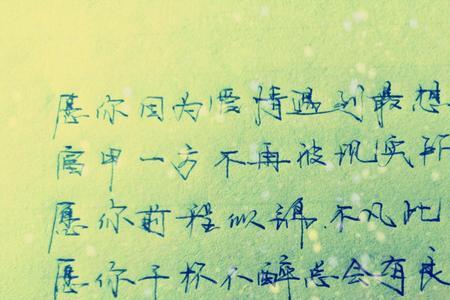 愿你因为爱情遇到最想
富甲一方不再被现实所
愿你前程似锦不凡此
愿你千杯不醉总会有良